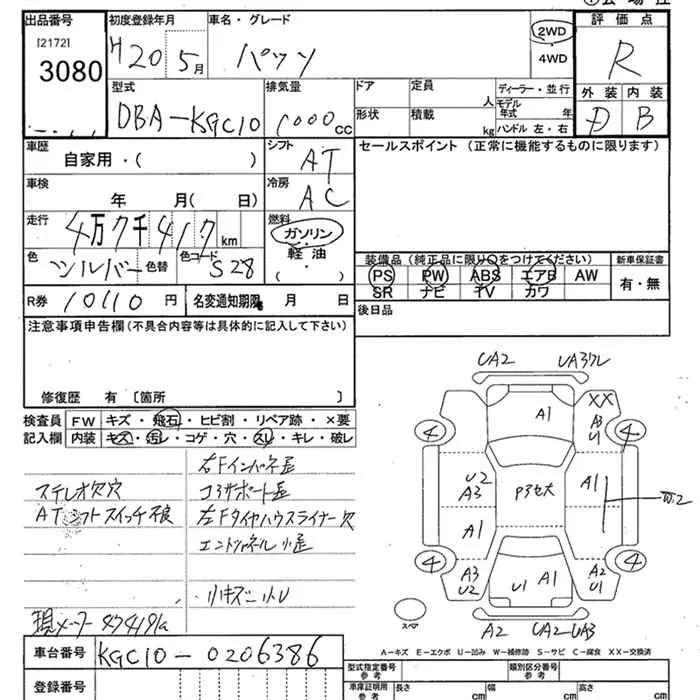 出品番号
[2172]
3080
初度登録年月
H20年5月
車名・グレード
パッソ
2WD
4WD
評価点
R
外装 内装
D B
型式
DBA-KGC10
排気量
1000cc
ドア
定員
人
形状
積載
kg
ディーラー・並行
モデル年式 年
ハンドル 左・右
車歴
自家用・( )
シフト
AT
セールスポイント (正常に機能するものに限ります)
車検
年 月( 日)
冷房
AC
走行
4万7千417km
燃料
ガソリン
軽油
( ・ )
色
シルバー
色替
色コード
S28
装備品 (純正品に限り○をつけてください)
PS PW ABS エアB AW
SR ナビ TV カワ
新車保証書
有・無
R券 10110円
名変通知期限 月 日
後日品
注意事項申告欄(不具合内容等は具体的に記入して下さい)
修復歴 有 〔箇所 〕
検査員記入欄
FW キズ・飛石・ヒビ割・リペア跡・×要
内装 キズ・汚レ・コゲ・穴・スレ・キレ・破レ
右Fインパネ歪
ステレオ欠穴
コアサポート歪
ATシフトスイッチ不良
左Fタイヤハウスライナー欠
エンドパネル小歪
小キズ 小U
現メーター 47419k
車台番号 KGC10-0206386
登録番号
UA2 UA3ワレ
A1
XX
A3
U1
4 4
U2
A3
P3セ大
A1
W2
A1
4 4
A3
U2
U1 A1
A2
U1
スペア
A2 UA2-UA3
A-キズ E-エクボ U-凹み W-補修跡 S-サビ C-腐食 XX-交換済
型式指定番号 参考
類別区分番号 参考
車庫証明用 参考
長さ cm
幅 cm
高さ cm